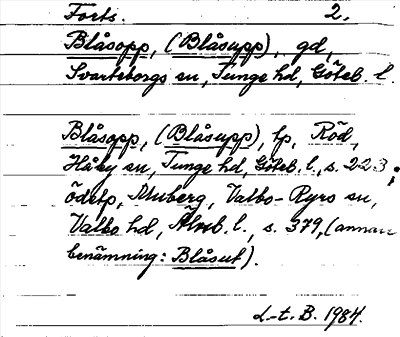 Forts. 2.
Blåsopp, (Blåsupp), gd,
Svarteborgs sn, Tunge hd, Göteb. l.
Blåsopp, (Blåsupp), lp, Röd,
Håby sn, Tunge hd, Göteb. l., s. 223;
ödetp, Muberg, Valbo-Ryrs sn,
Valbo hd, Älvsb. l., s. 379, (annan
benämning: Blåsut).
L-t. B. 1984.